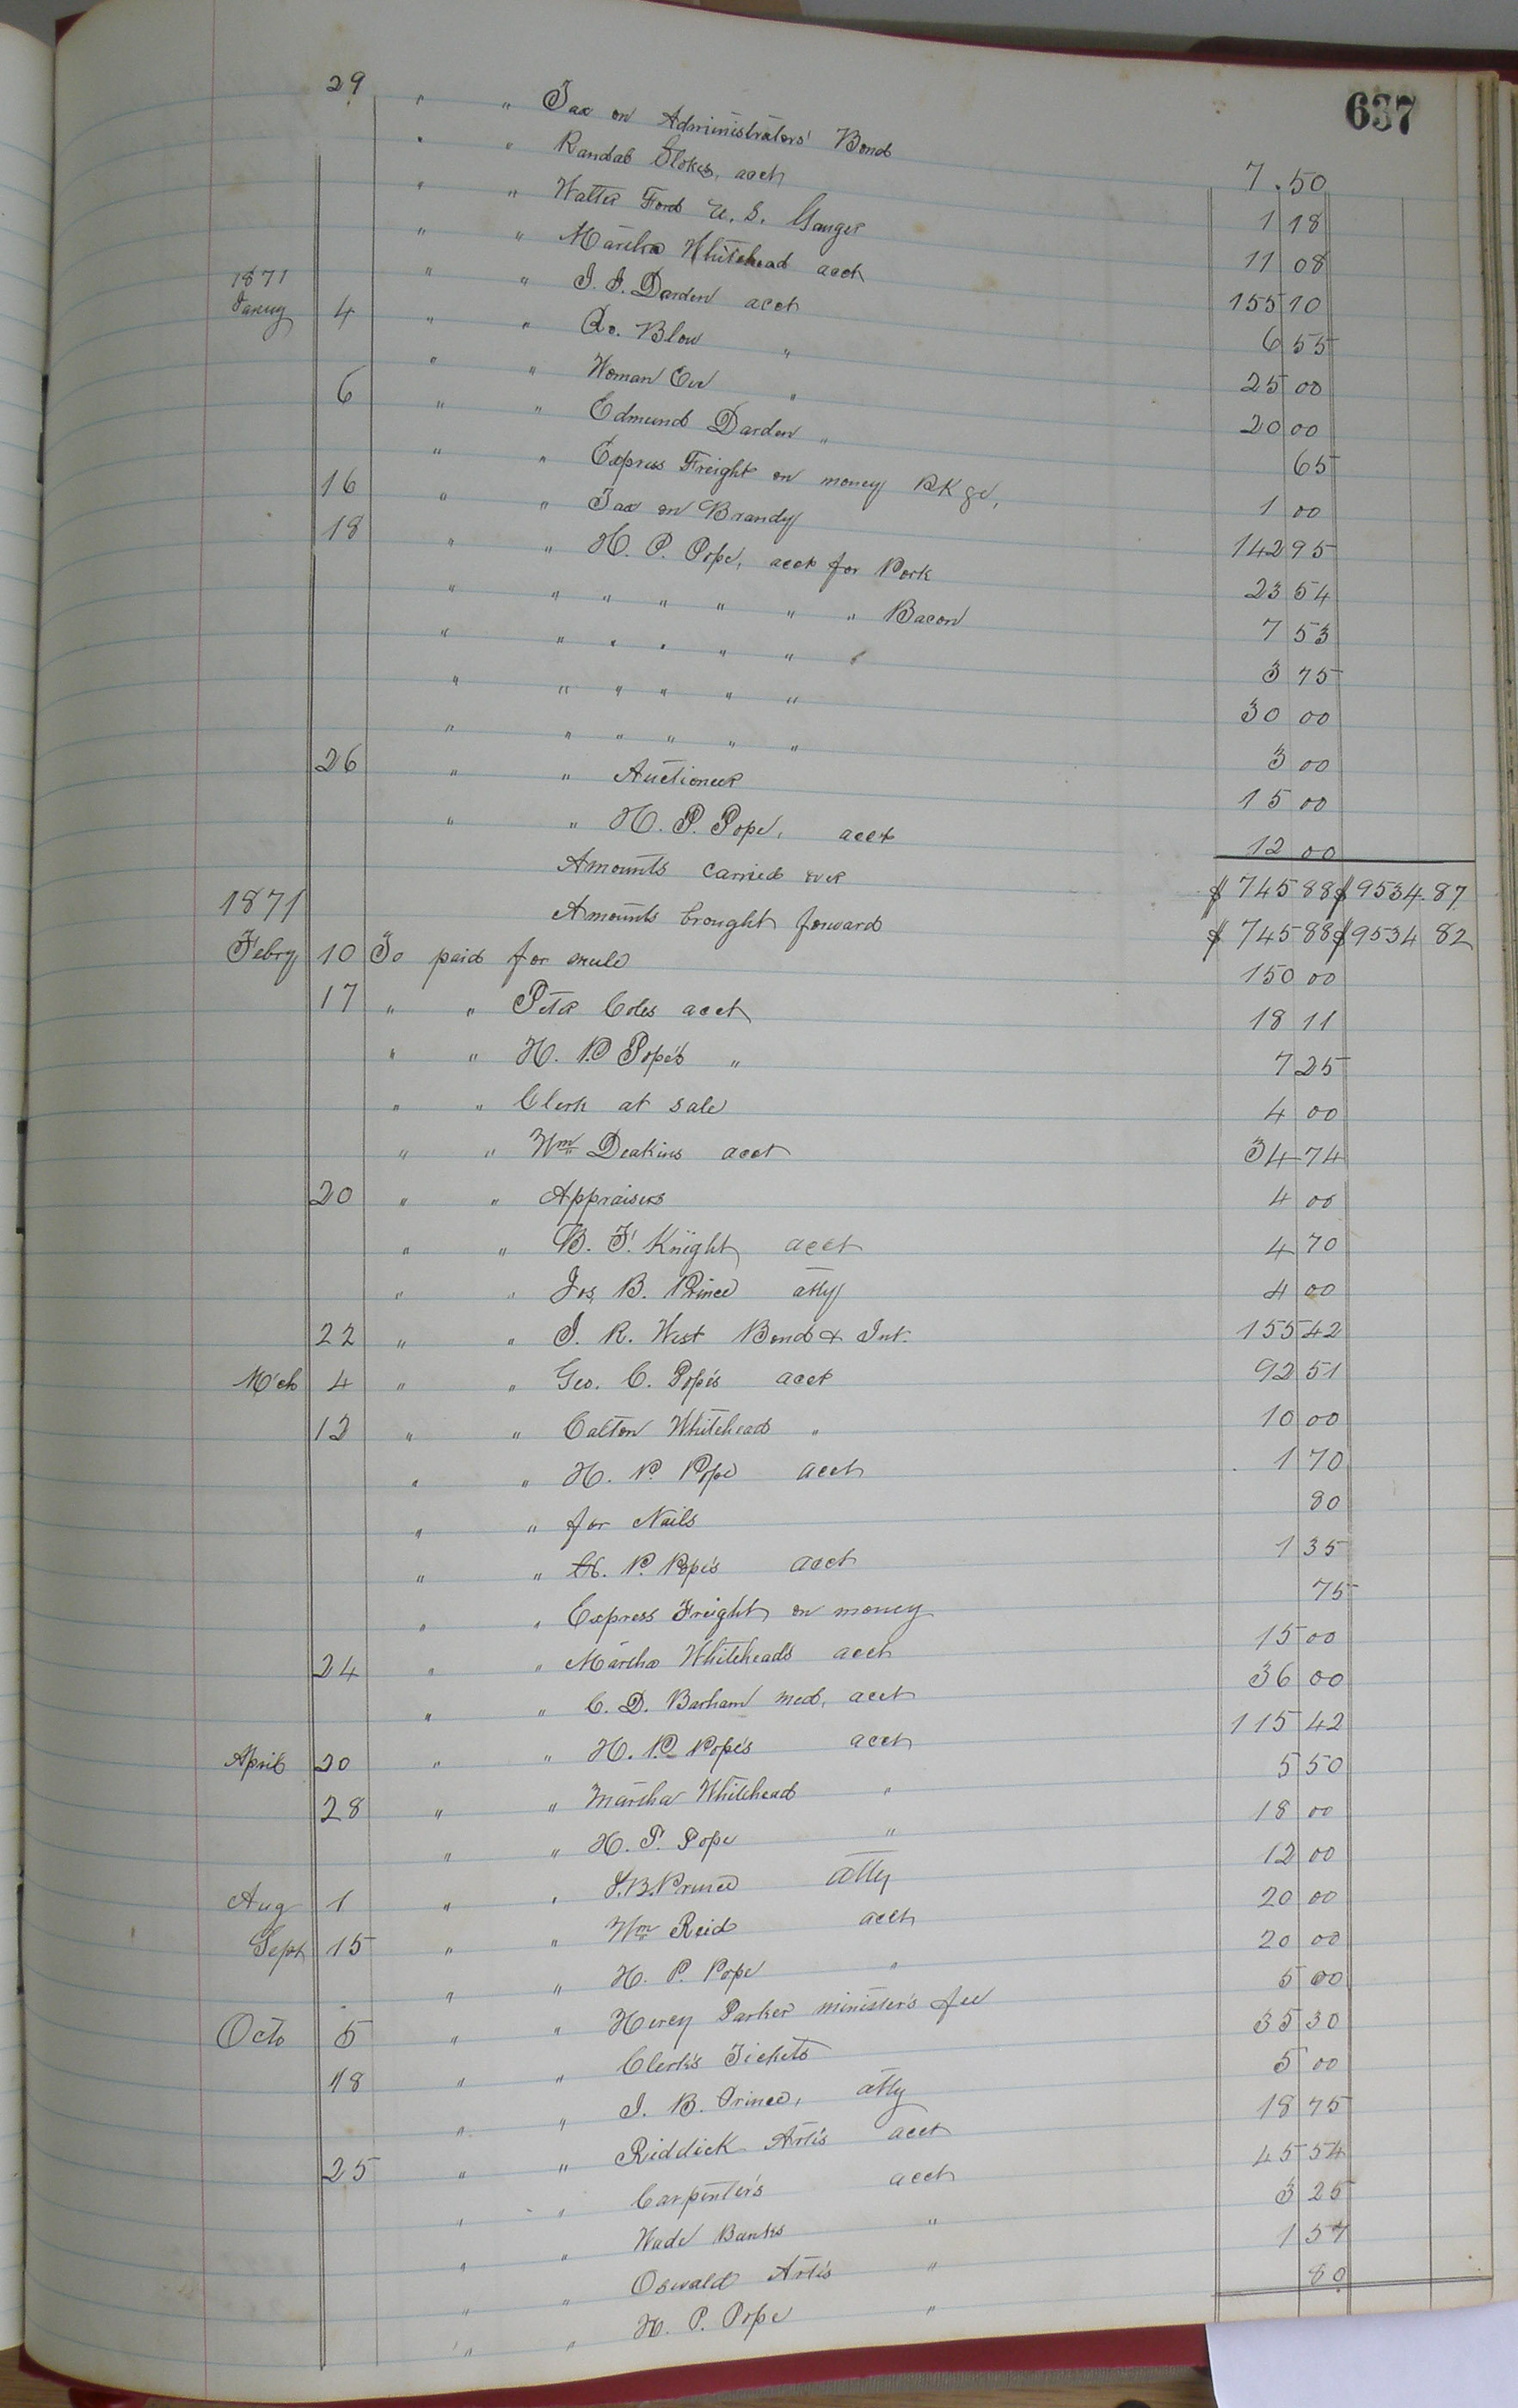 637
29 " " Tax on Administrators' Bond 7.50
" " Randal Stokes, acct 1 18
" " Walter Ford U. S. Gauger 11 08
" " Martha Whitehead acct 155 10
1871
" " J. J. Darden acct 6 55
Januy 4 " " Ro. Blow " 25 00
" " Woman Eve " 20 00
6 " " Edmund Darden " 65
" " Express Freight on money PKge, 1 00
16 " " Tax on Brandy 142 95
18 " " H. P. Pope, acct for Pork 23 54
" " " " " " " Bacon 7 53
" " " " " " " 3 75
" " " " " " 30 00
" " " " " " 3 00
26 " " Auctioneer 15 00
" " H. P. Pope, acct 12 00
Amounts carried over $745 88 $9534.87
1871
Amounts brought forward $745 88 $9534 82
Febry 10 To paid for mule 150 00
17 " " Peter Coles acct 18 11
" " H. P. Pope's " 7 25
" " Clerk at sale 4 00
" " Wm Deakins acct 34 74
20 " " Appraisers 4 00
" " B. F. Knight acct 4 70
" " Jos, B. Prince atty 4 00
22 " " J. R. West Bond & Int. 155 42
M'ch 4 " " Geo. C. Pope's acct 92 51
12 " " Calton Whitehead " 10 00
" " H. P. Pope acct 1 70
" " for Nails 80
" " H. P. Pope's acct 1 35
" " Express Freight on money 75
24 " " Martha Whitehead's acct 15 00
" " C. D. Barham med, acct 36 00
April 20 " " H. P. Pope's acct 115 42
28 " " Martha Whitehead " 5 50
" " H. P. Pope " 18 00
Aug 1 " " J. B. Prince atty 12 00
Sept 15 " " Wm Reid acct 20 00
" " H. P. Pope " 20 00
Octo 5 " " Hervy Parker minister's fee 5 00
18 " " Clerk's Tickets 35 30
" " J. B. Prince, atty 5 00
25 " " Riddick Artis acct 18 75
" " Carpenter's acct 45 54
" " Wade Banks " 3 25
" " Oswald Artis " 1 57
" " H. P. Pope " 80